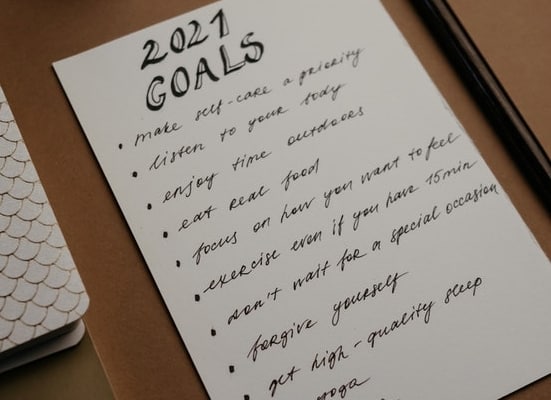 2021
GOALS
• make self-care a priority
• listen to your body
• enjoy time outdoors
• eat real food
• focus on how you want to feel
• exercise even if you have 15min
• don't wait for a special occasion
• forgive yourself
• get high-quality sleep
yoga